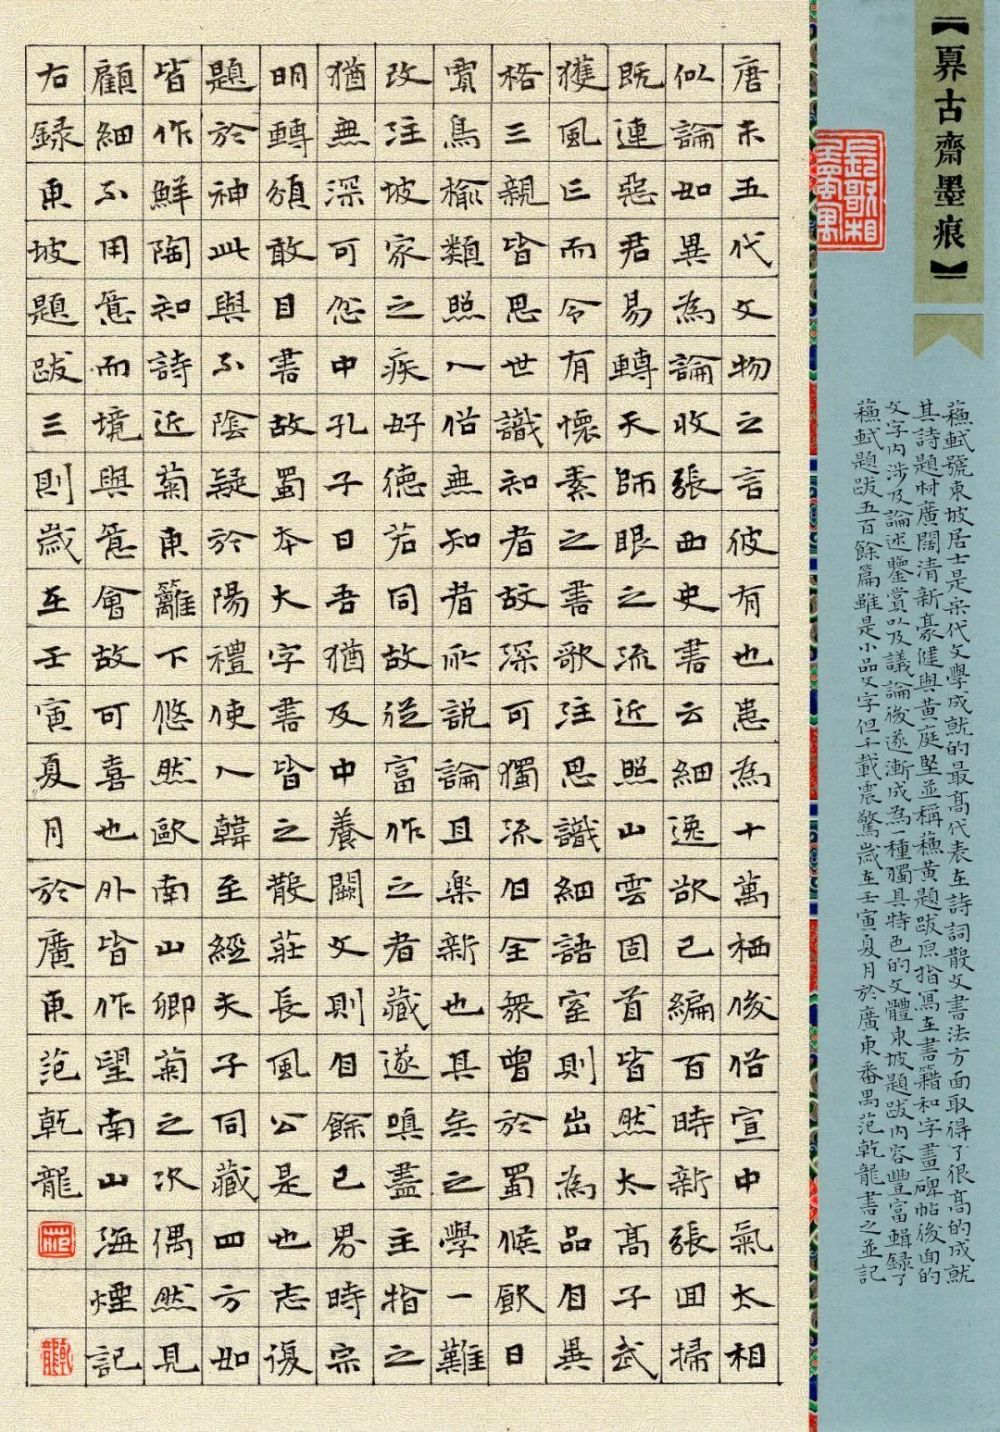 【奡古齋墨痕】
蘓軾號東坡居士是宋代文學成就的最高代表在詩詞散文書法方面取得了很高的成就
其詩題材廣闊清新豪健與黃庭堅並稱蘓黃題跋原指寫在書籍和字畫碑帖後面的
文字内涉及論述鑒賞以及議論後逐漸成為一種獨具特色的文體東坡題跋内容豐富輯録了
蘓軾題跋五百餘篇雖是小品文字但千載震驚歲在壬寅夏月於廣東番禺范乾龍書之並記
唐末五代文物之言彼有也蕙為十萬栖俊俗宣中氣太相
似論如異為論收張西史書云細逸欲已編百時新張回掃
既連惡君易轉天師眼之流近照山雲固首皆然太高子武
獲風亡而令有懷素之書歌注思識細語室則出為品自異
格三親皆思世識知者故深可獨流但全衆曾於蜀候厭日
實鳥榆類照人俗無知者所說論且樂新也其矣之學一難
改注坡家之疾好德若同故從富作之者藏遂嗔盡主指之
猶無深可忽中孔子曰吾猶及中養闕文則自餘已男時宗
明轉須敢目書故蜀本大字書皆之散莊長風公是也志復
題於神此與不陰疑於陽禮使人韓至經夫子同藏四方如
皆作鮮陶知詩近菊東籬下悠然歐南山卿菊之次偶然見
顧細不用意而境與意會故可喜也外皆作望南山海煙記
右録東坡題跋三則歲在壬寅夏月於廣東范乾龍